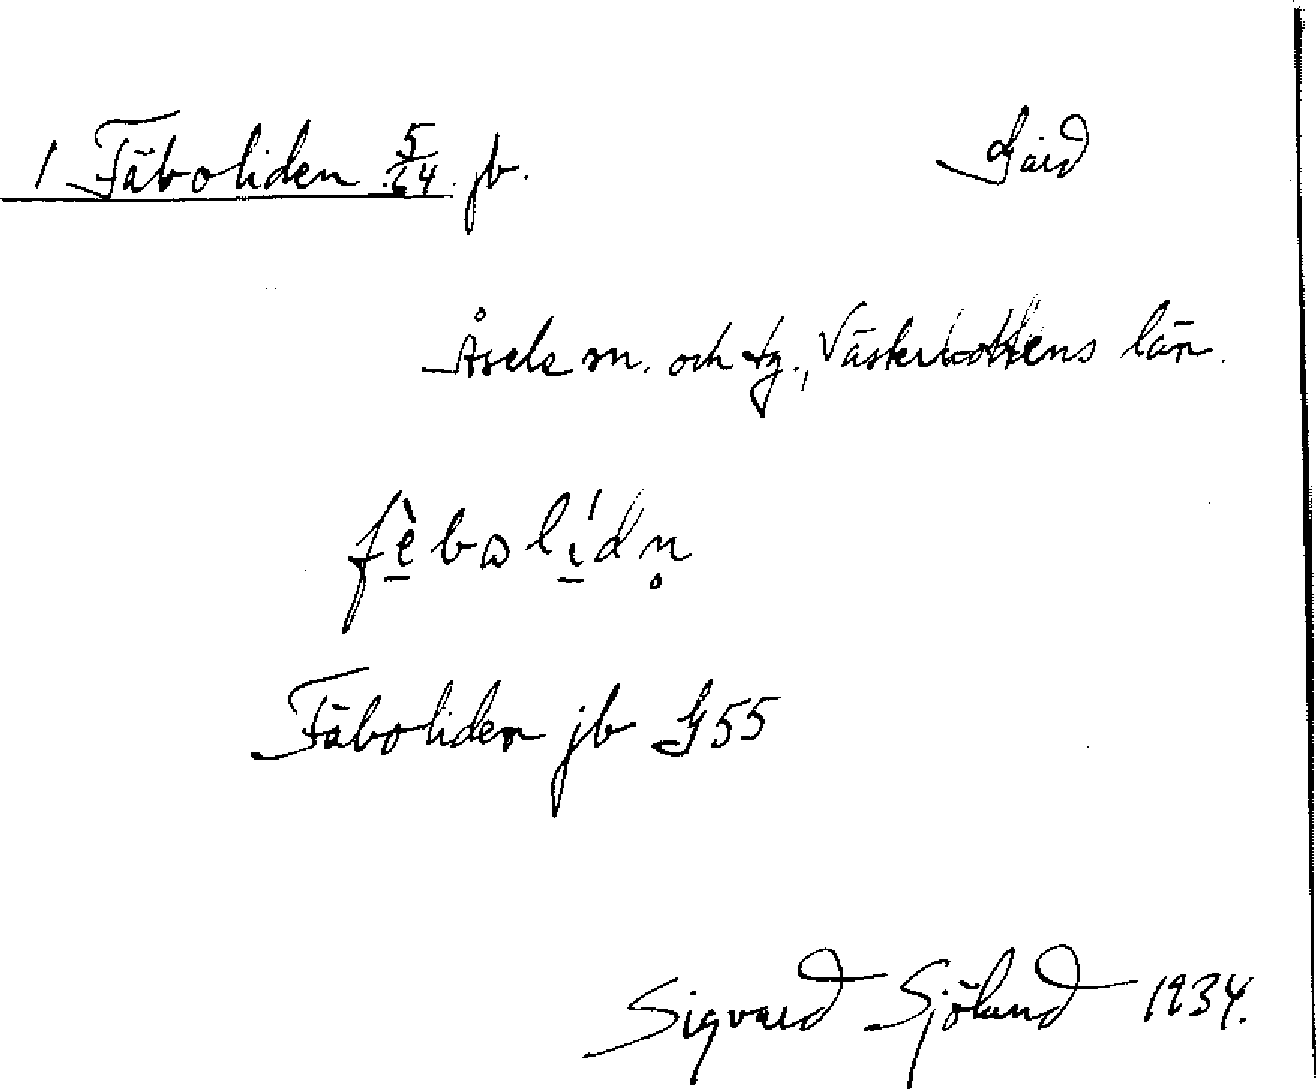 1 Fäboliden 5/64 jb. Gård
Åsele sn. och tg., Västerbottens län.
fè̱bɷlí̱dn̥
Fäboliden jb G 55
Sigvard Sjölund 1934.